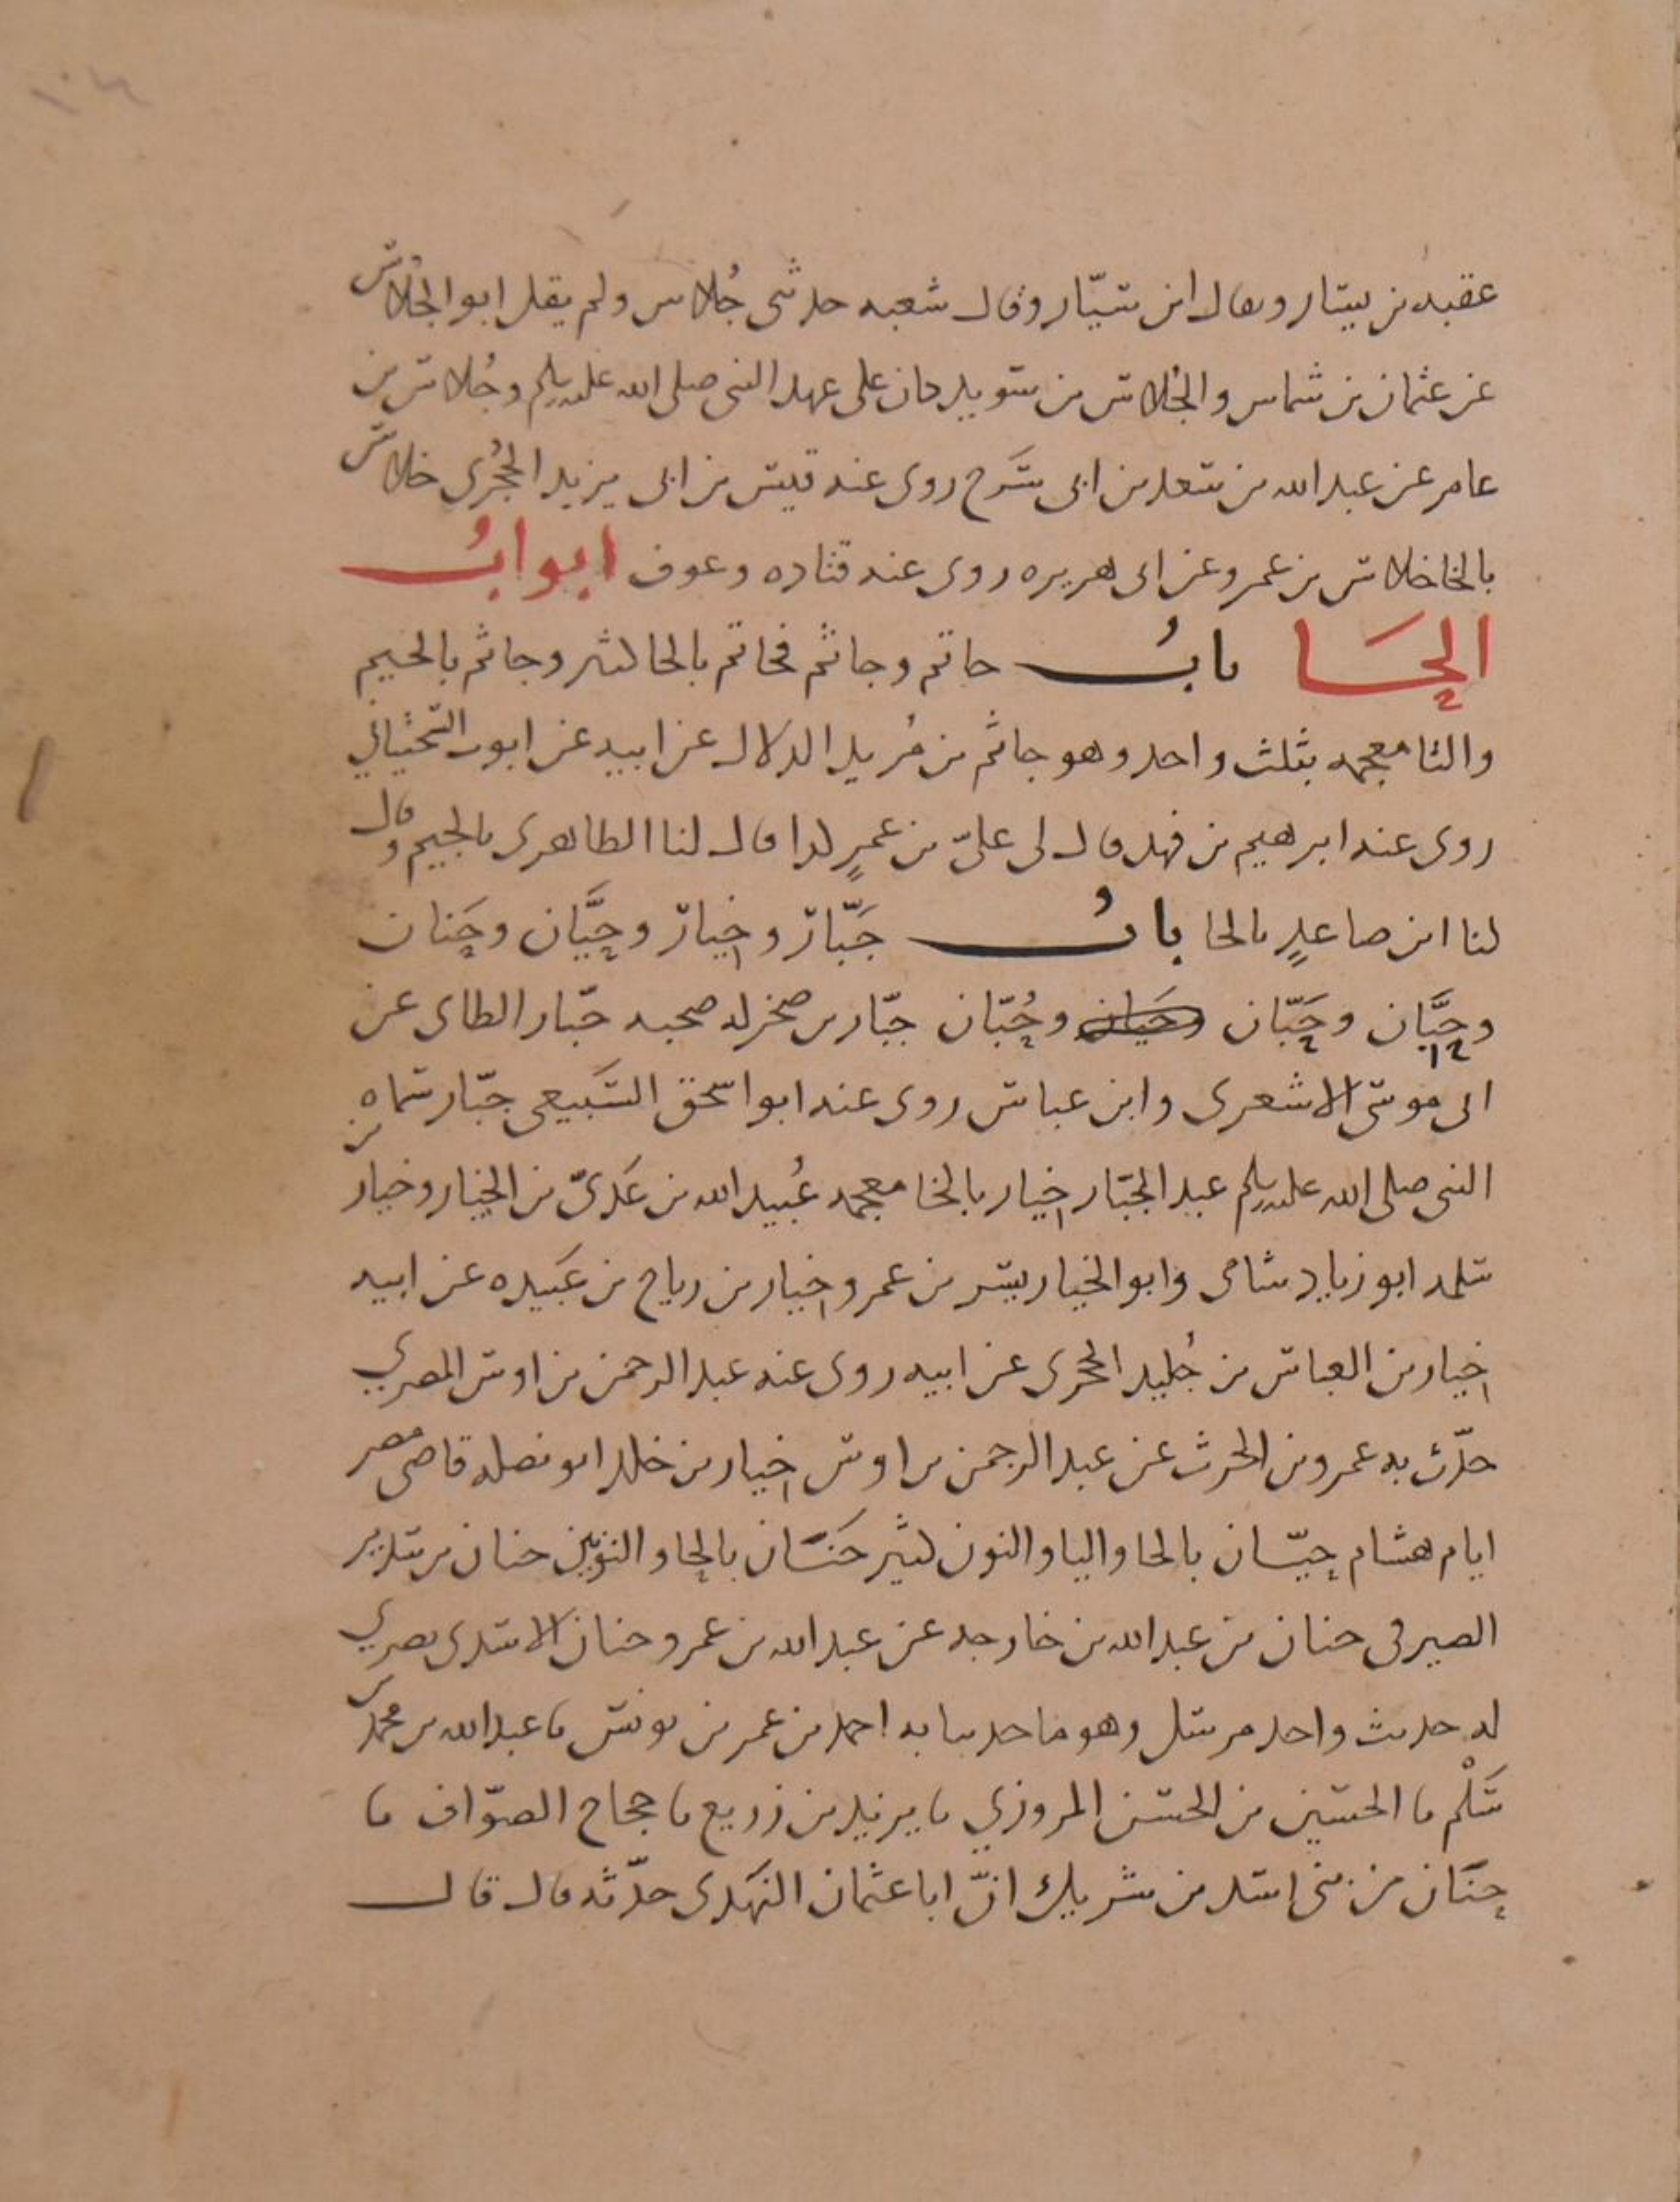 عقبه بن سيار ويقال ابن سيّار وقال شعبه حدثني جُلاس ولم يقل ابو الجُلاس
عن عثمان بن شماس والجُلاس بن سويد كان على عهد النبي صلى الله عليه وسلم وجُلاس بن
عامر عن عبد الله بن سعد بن ابي سَرح روى عنه قيس بن ابي يزيد الحَجْرى خلاس
بالخا خلاس بن عمرو عن ابي هريره روى عنه قتاده وعوف ابوابُ
الحَا بابُ حاتم وجاثم فحاتم بالحا كثير وجاثم بالجيم
والثا معجمه بثلث واحد وهو جاثم بن مُريد الدلال عن ابيه عن ايوب السَّختياني
روى عنه ابرهيم بن فهد قال لى علىّ بن عميرٍ كذا قال لنا الطاهرى بالجيم وقال
لنا ابن صاعدٍ بالحا بابُ جَبّار وخِيار وحَيَّان وحَنان
وحِبَّان وحَبّان وحُبّان جبّار بن صخر له صحبه جبّار الطاى عن
ابى موسى الاشعرى وابن عباس روى عنه ابو اسحق السَبيعى جبّار سماه
النبى صلى الله عليه وسلم عبد الجبّار خيار بالخا معجمه عُبيد الله بن عَدىّ بن الخيار وخيار بن
سلمه ابو زياد شامى وابو الخيار يسر بن عمرو خيار بن رياح بن عَبيده عن ابيه
خيار بن العباس بن جُليد الحجرى عن ابيه روى عنه عبد الرحمن بن اوس المصري
حدّث به عمرو بن الحرث عن عبد الرحمن بن اوس خيار بن خالد ابو نضله قاضى مصر
ايام هشام حيّان بالحا واليا والنون كثير حَنَان بالحا والنونين حنان بن سدير
الصيرفى حنان بن عبد الله بن خارجه عن عبد الله بن عمرو حنان الاسدى بصري
له حديث واحد مرسل وهو ما حدثنا به احمد بن عمر بن يونس نا عبد الله بن محمد بن
سَلْم نا الحسين بن الحسن المروزي نا يزيد بن زريع نا حجاج الصوّاف نا
حنَان من بنى اسد بن شريك انّ ابا عثمان النهَدى حدّثه قال قال